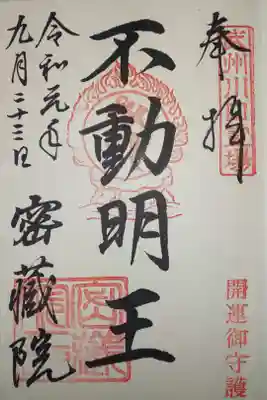 奉拝
開運御守護
不動明王
令和元年
九月二十三日
密蔵院